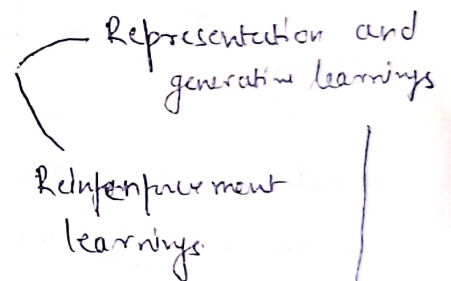 Representation and
generative learnings
Reinfenforcement
learnings.